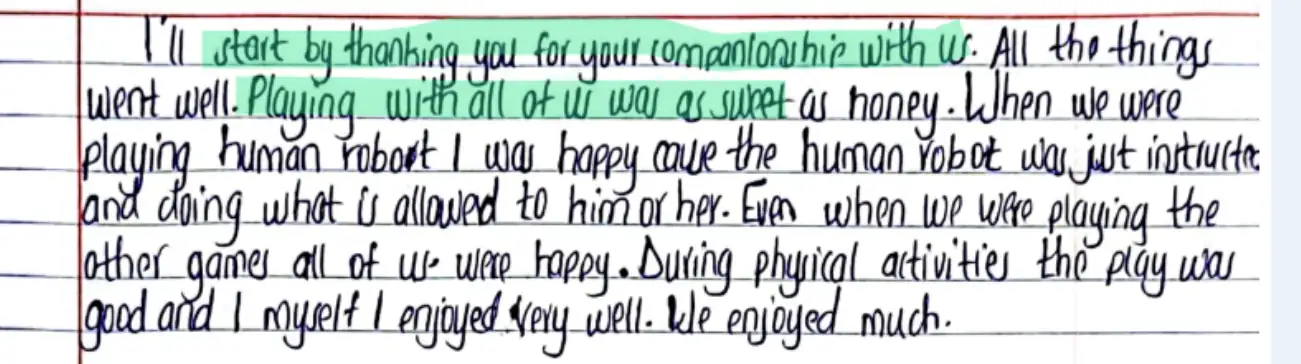 I'll start by thanking you for your companionship with us. All the things
went well. Playing with all of us was as sweet as honey. When we were
playing human robort I was happy cause the human robot was just instructe
and doing what is allowed to him or her. Even when we were playing the
other games all of us were happy. During physical activities the play was
good and I myself I enjoyed very well. We enjoyed much.